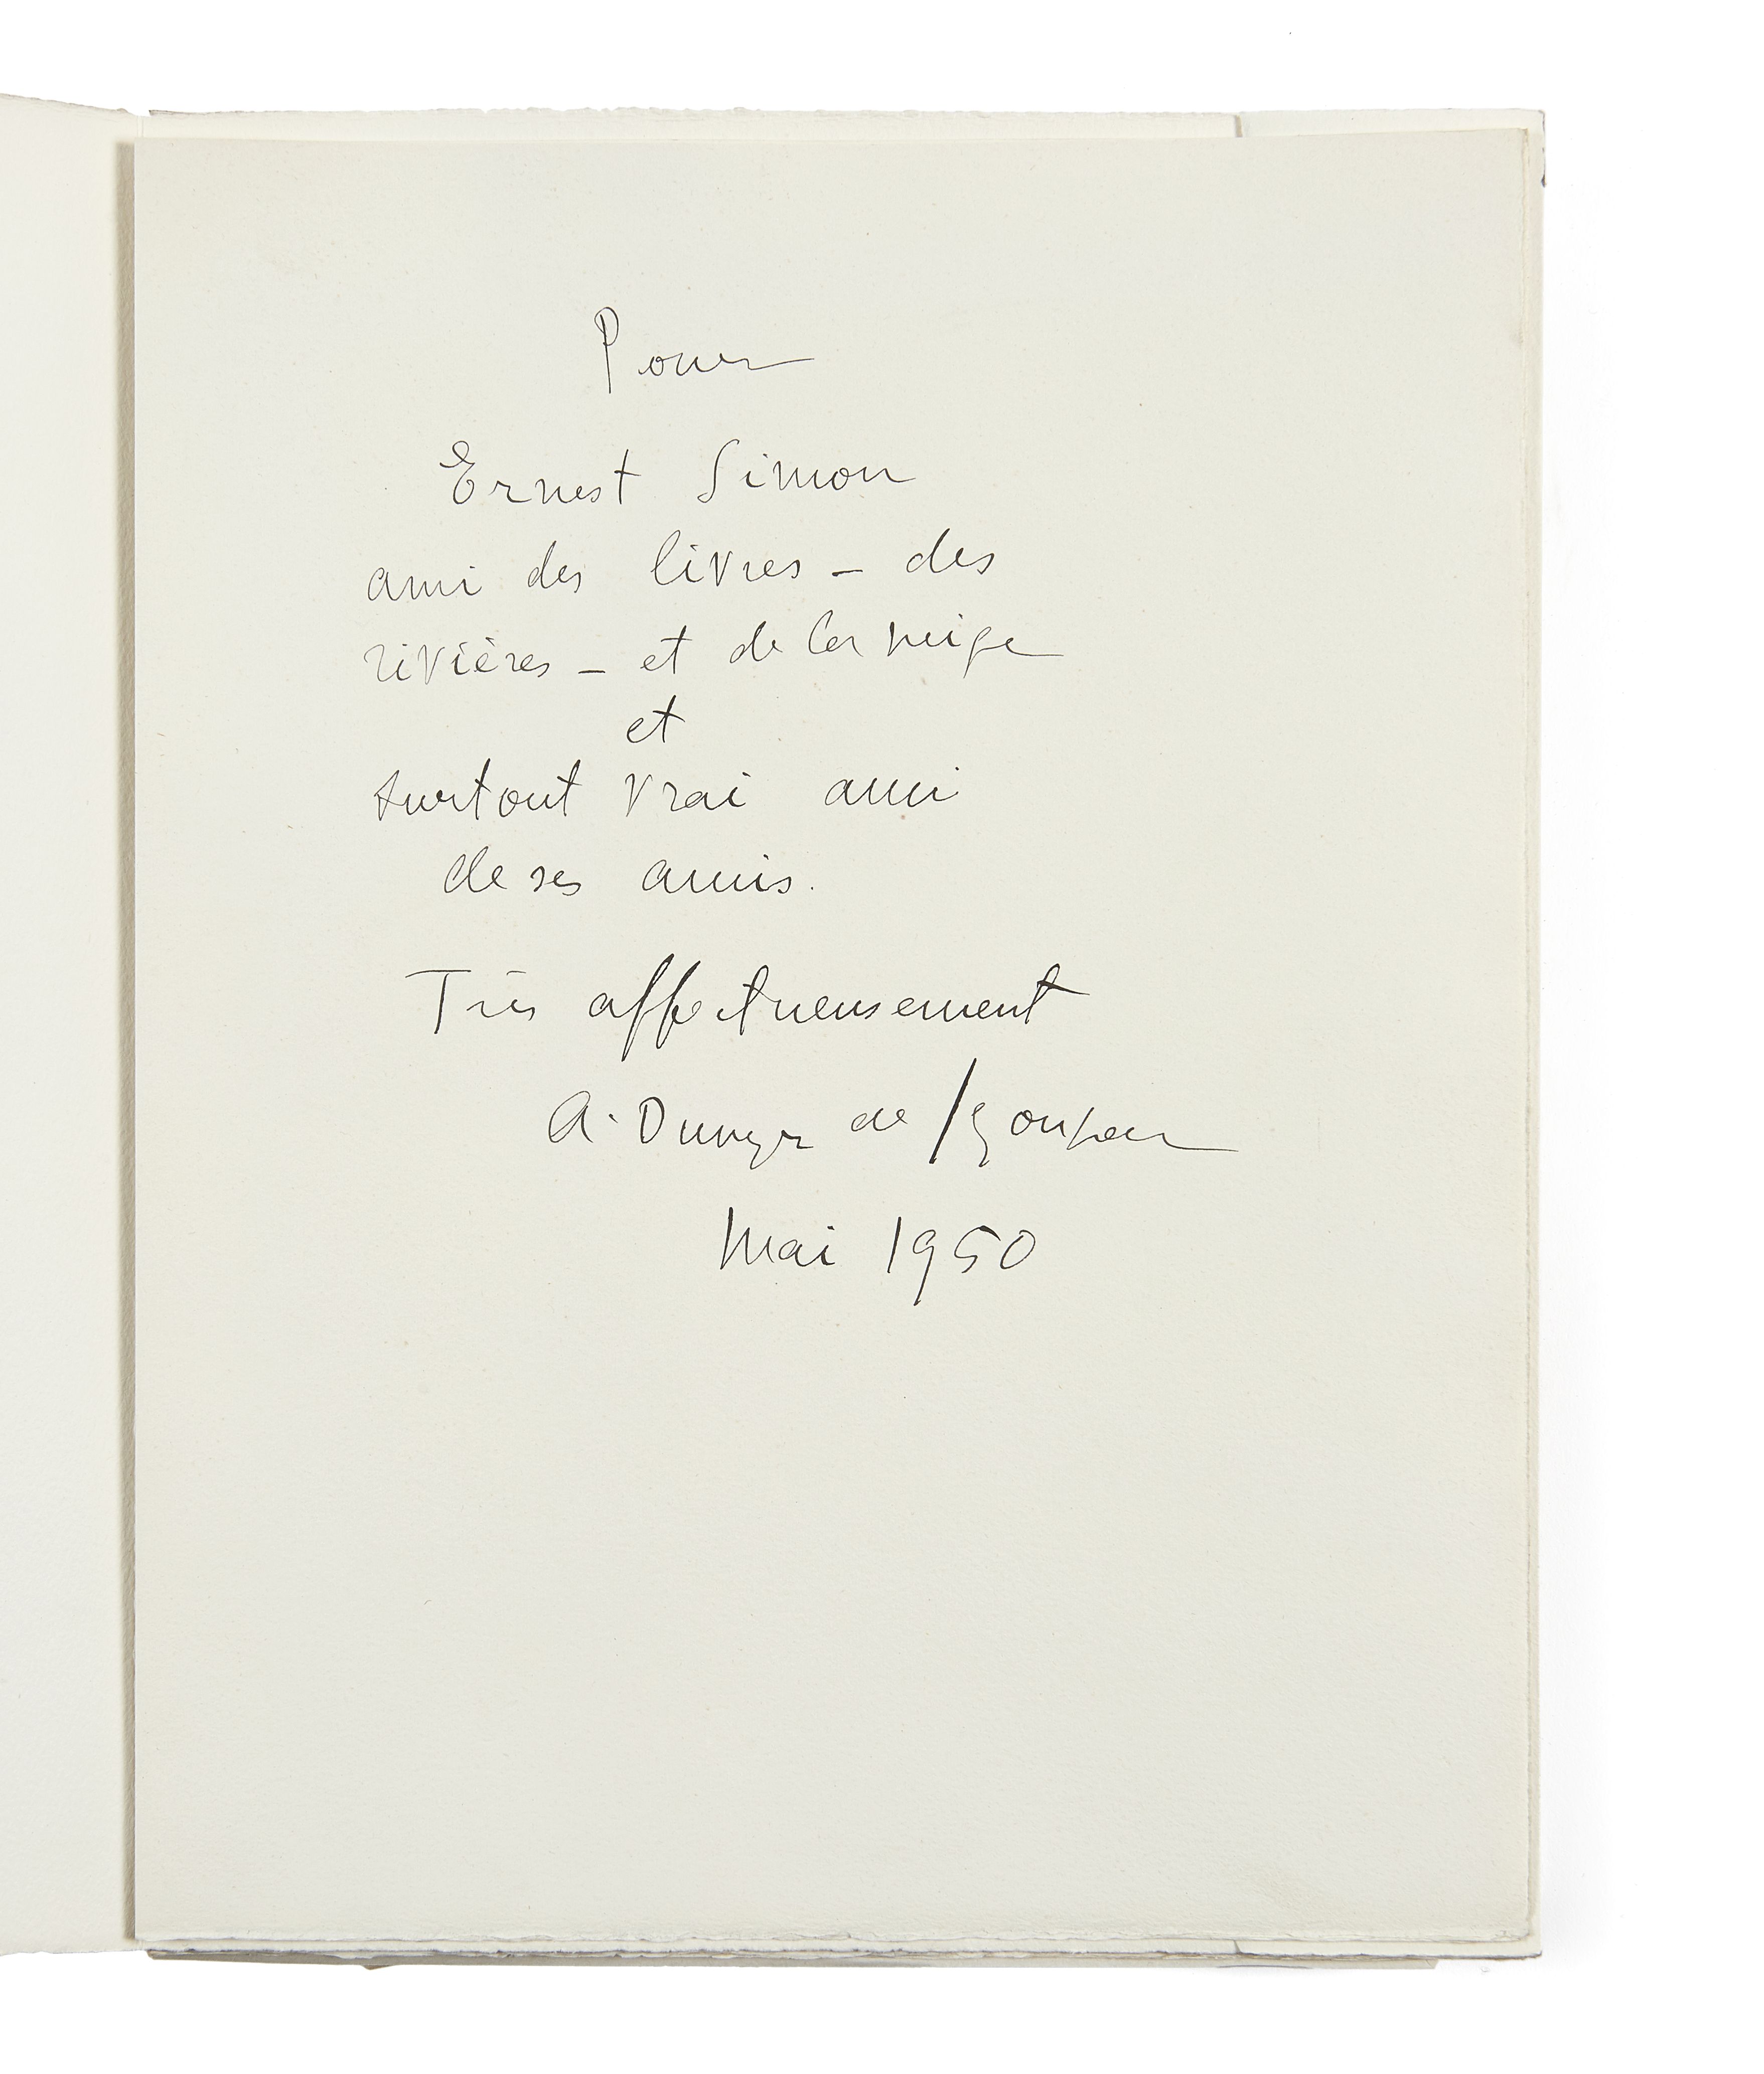 Pour
Ernest Simon
ami des livres – des
rivières – et de la neige
et
surtout vrai ami
de ses amis.
Très affectueusement
A. Dunoyer de Segonzac
Mai 1950